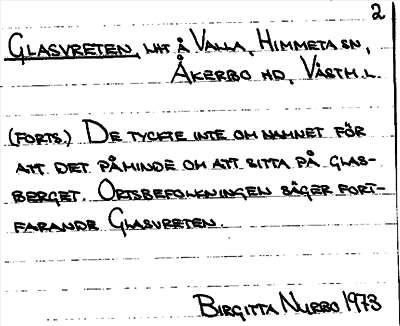 2
GLASVRETEN, LHT Å VALLA, HIMMETA SN,
ÅKERBO HD, VÄSTM.L.
(FORTS.) DE TYCKTE INTE OM NAMNET FÖR
ATT DET PÅMINDE OM ATT SITTA PÅ GLAS-
BERGET. ORTSBEFOLKNINGEN SÄGER FORT-
FARANDE GLASVRETEN.
BIRGITTA NURBO 1973